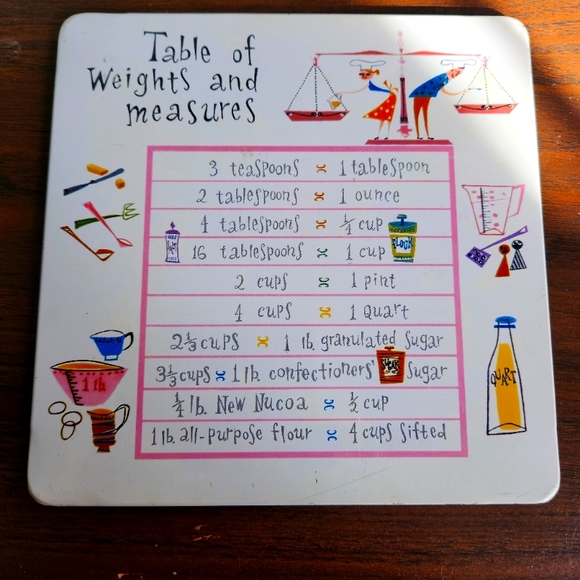 Table of
Weights and
measures
3 teaspoons = 1 tablespoon
2 tablespoons = 1 ounce
4 tablespoons = ¼ cup
16 tablespoons = 1 cup
FLOUR
2 cups = 1 pint
4 cups = 1 Quart
2⅓ cups = 1 lb. granulated Sugar
3⅓ cups = 1 lb. confectioners' Sugar
¼ lb. New Nucoa = ½ cup
1 lb. all-purpose flour = 4 cups sifted
1 lb
QUART